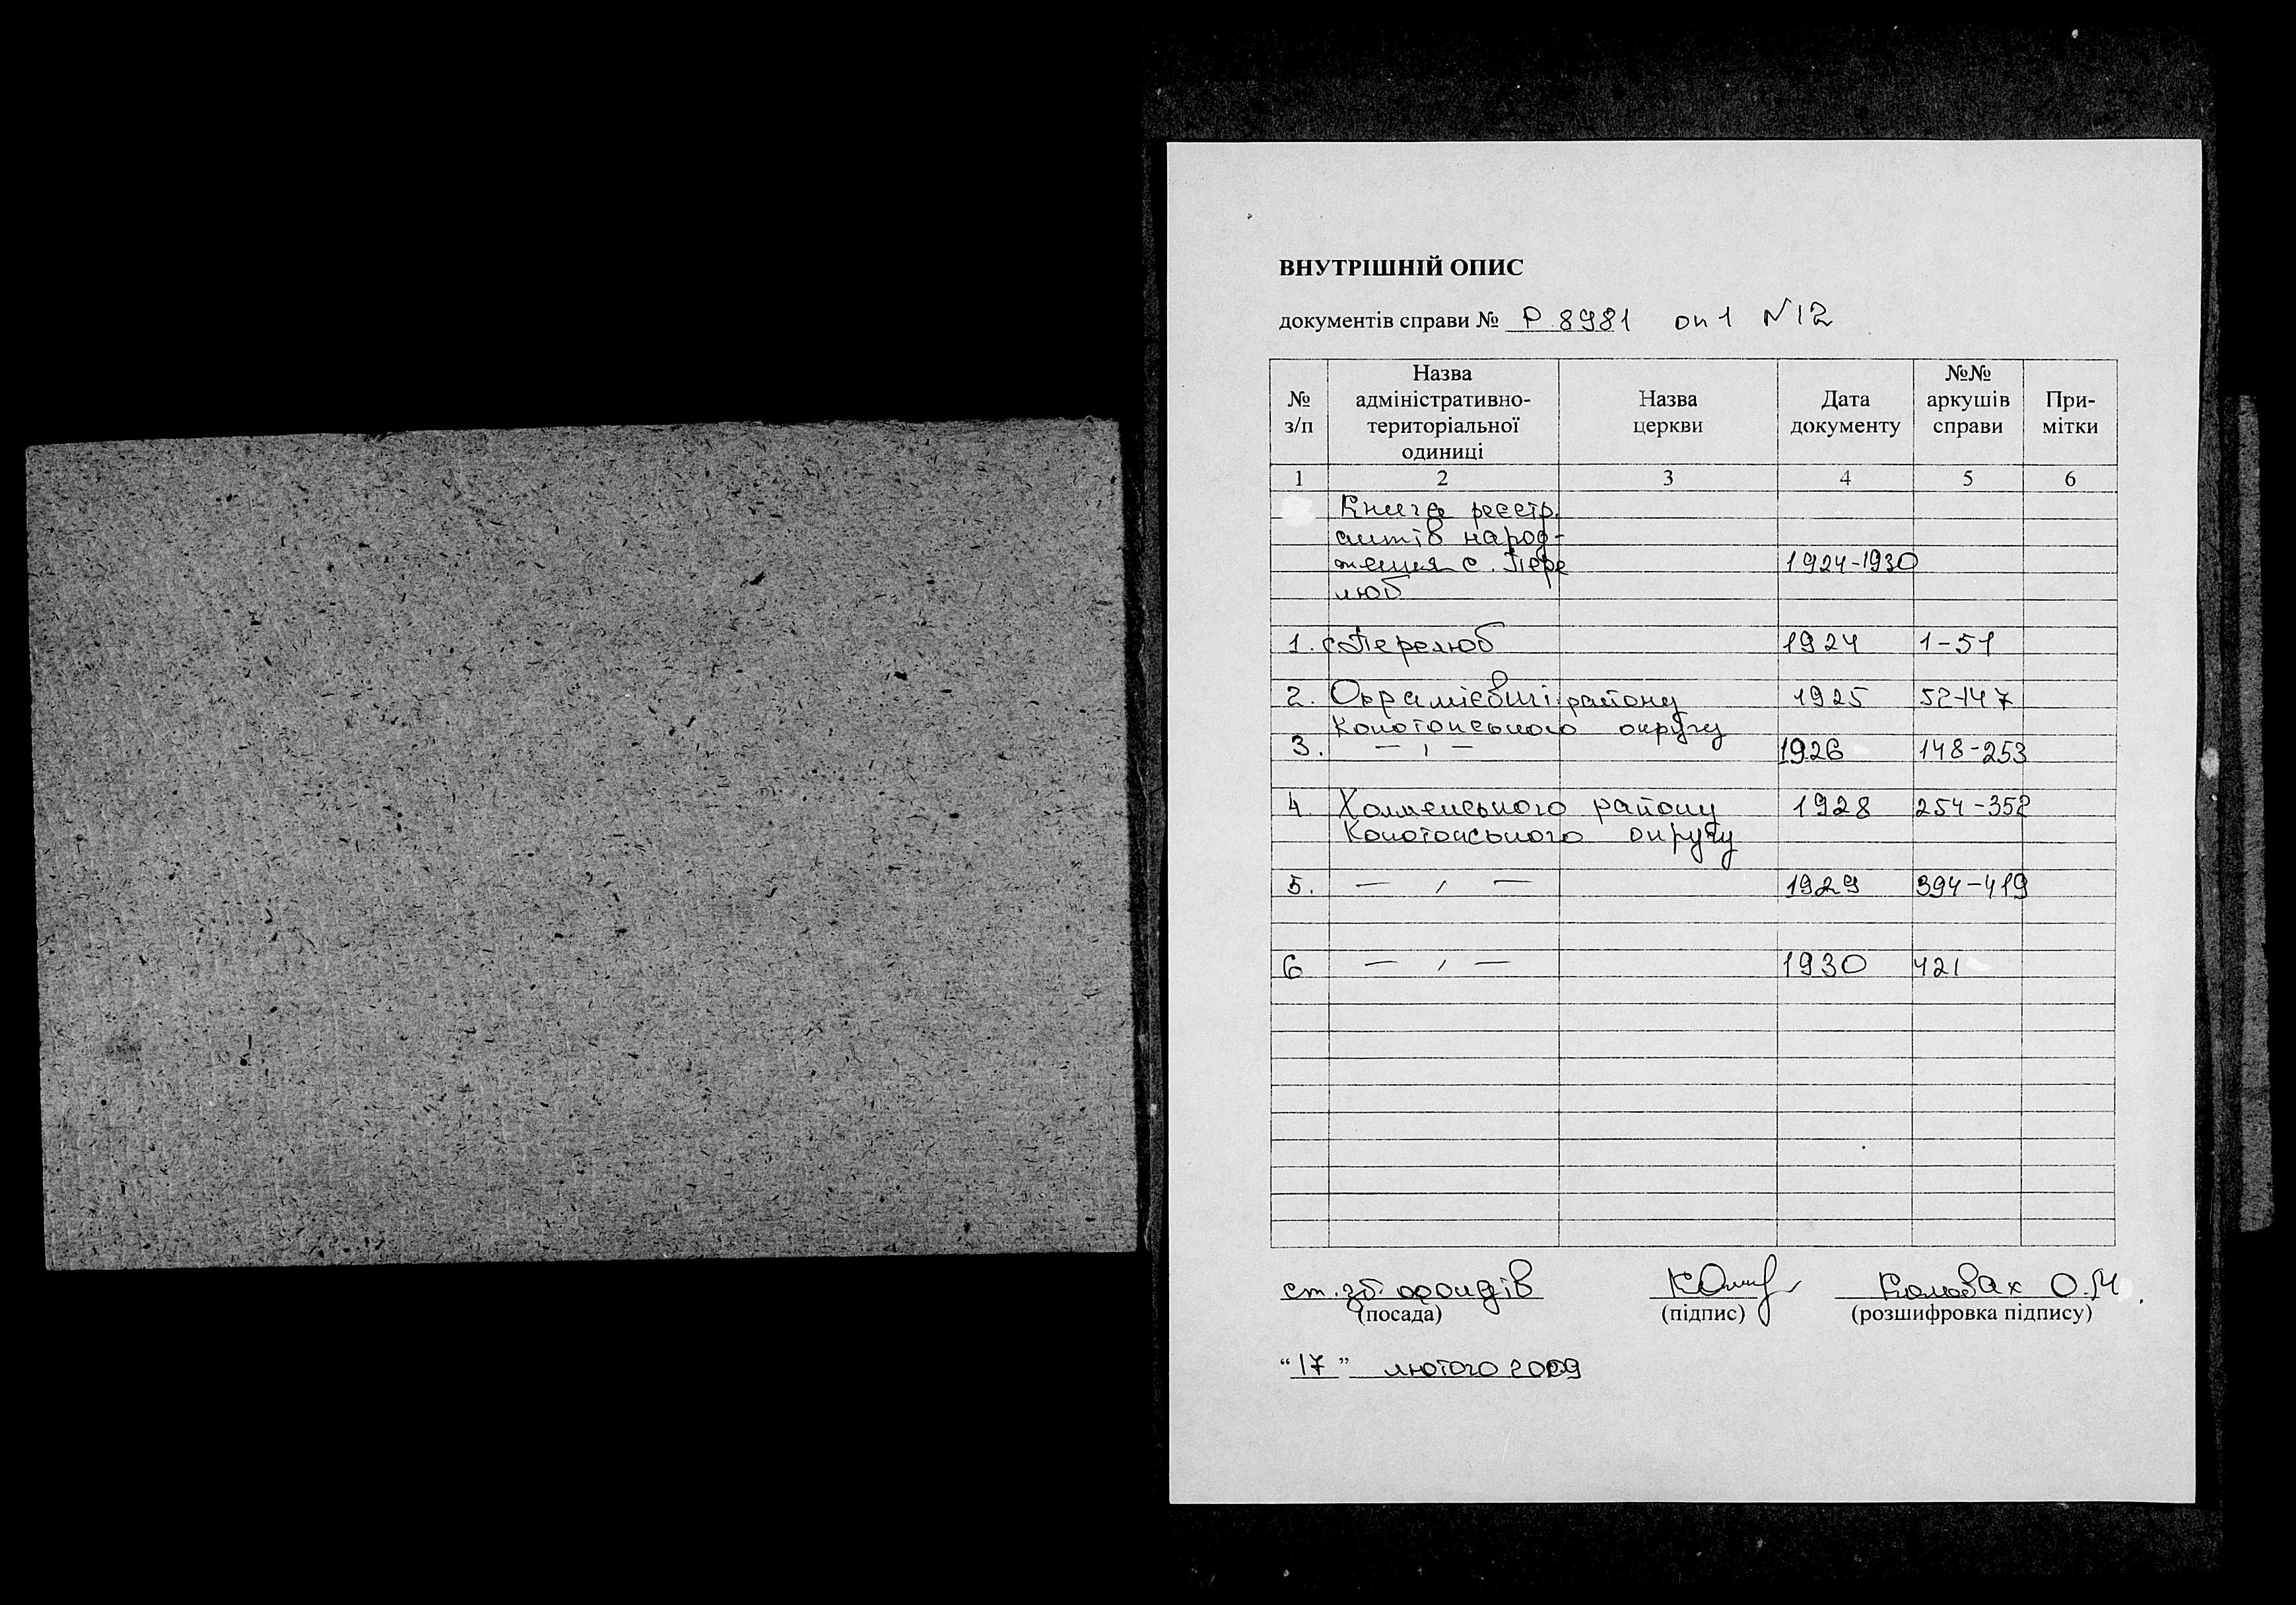 ВНУТРІШНІЙ ОПИС
документів справи № Р 8981 оп 1 N12
№ з/п
Назва адміністративно-територіальної одиниці
Назва церкви
Дата документу
№№ аркушів справи
При-мітки
1 2 3 4 5 6
Книга реєстр.
актів народ-
ження с. Пере 1924-1930
люб
1. с Перелюб 1924 1-51
2. району 1925 52-147
Конотопського округу
3. — ı — 1926 148-253
4. Холменського району 1928 254-352
Конотопського округу
5. — ı — 1929 394-419
6 — ı — 1930 421
ст. зб. фондів О.М.
(посада) (підпис) (розшифровка підпису)
"17" лютого 2009